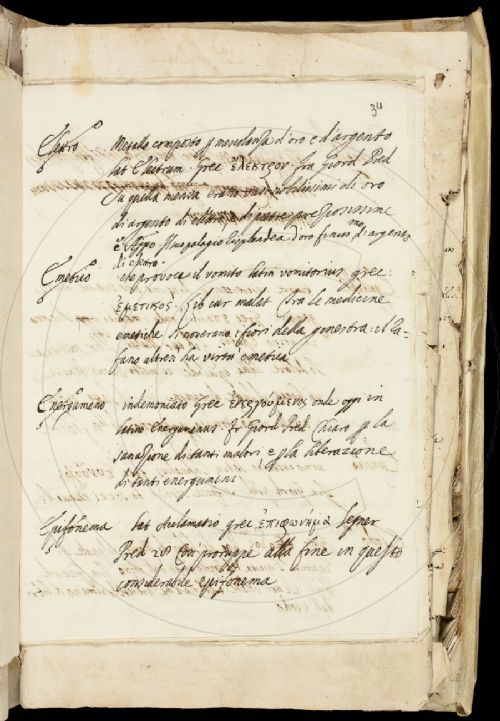 34
Elettro Metallo composto p mescolanza d'oro e d'argento
Lat Electrum. Grec ἔλεκτρον. Fra Giord Pred
Su quella mensa erano vasi nobilissimi di oro
di argento di elettro di pietre preziosissime
e di argento
di elettro.
Emetico che provoca il vomito latin vomitorius grec:
ἐμετικος. Lib cur malat Tra le medicine
emetiche si noverano i fiori della ginestra: il Za-
fano altresi ha virtù emetica
Energumeno indemoniato Grec ἐνεργούμενος onde oggi in
latino Energumenus. Fr Giord Pred Chiaro p la
sanazione di tanti malori, e p la liberazione
di tanti energumeni
Epifonema Lat Aclamatio grec ἐπιφώνημα Segner
Pred 28 Cosi proruppe alla fine in questo
considerabile epifonema